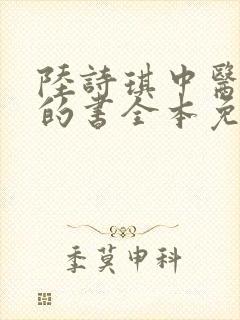 陸詩琪中醫
的書全本免
季莫申科